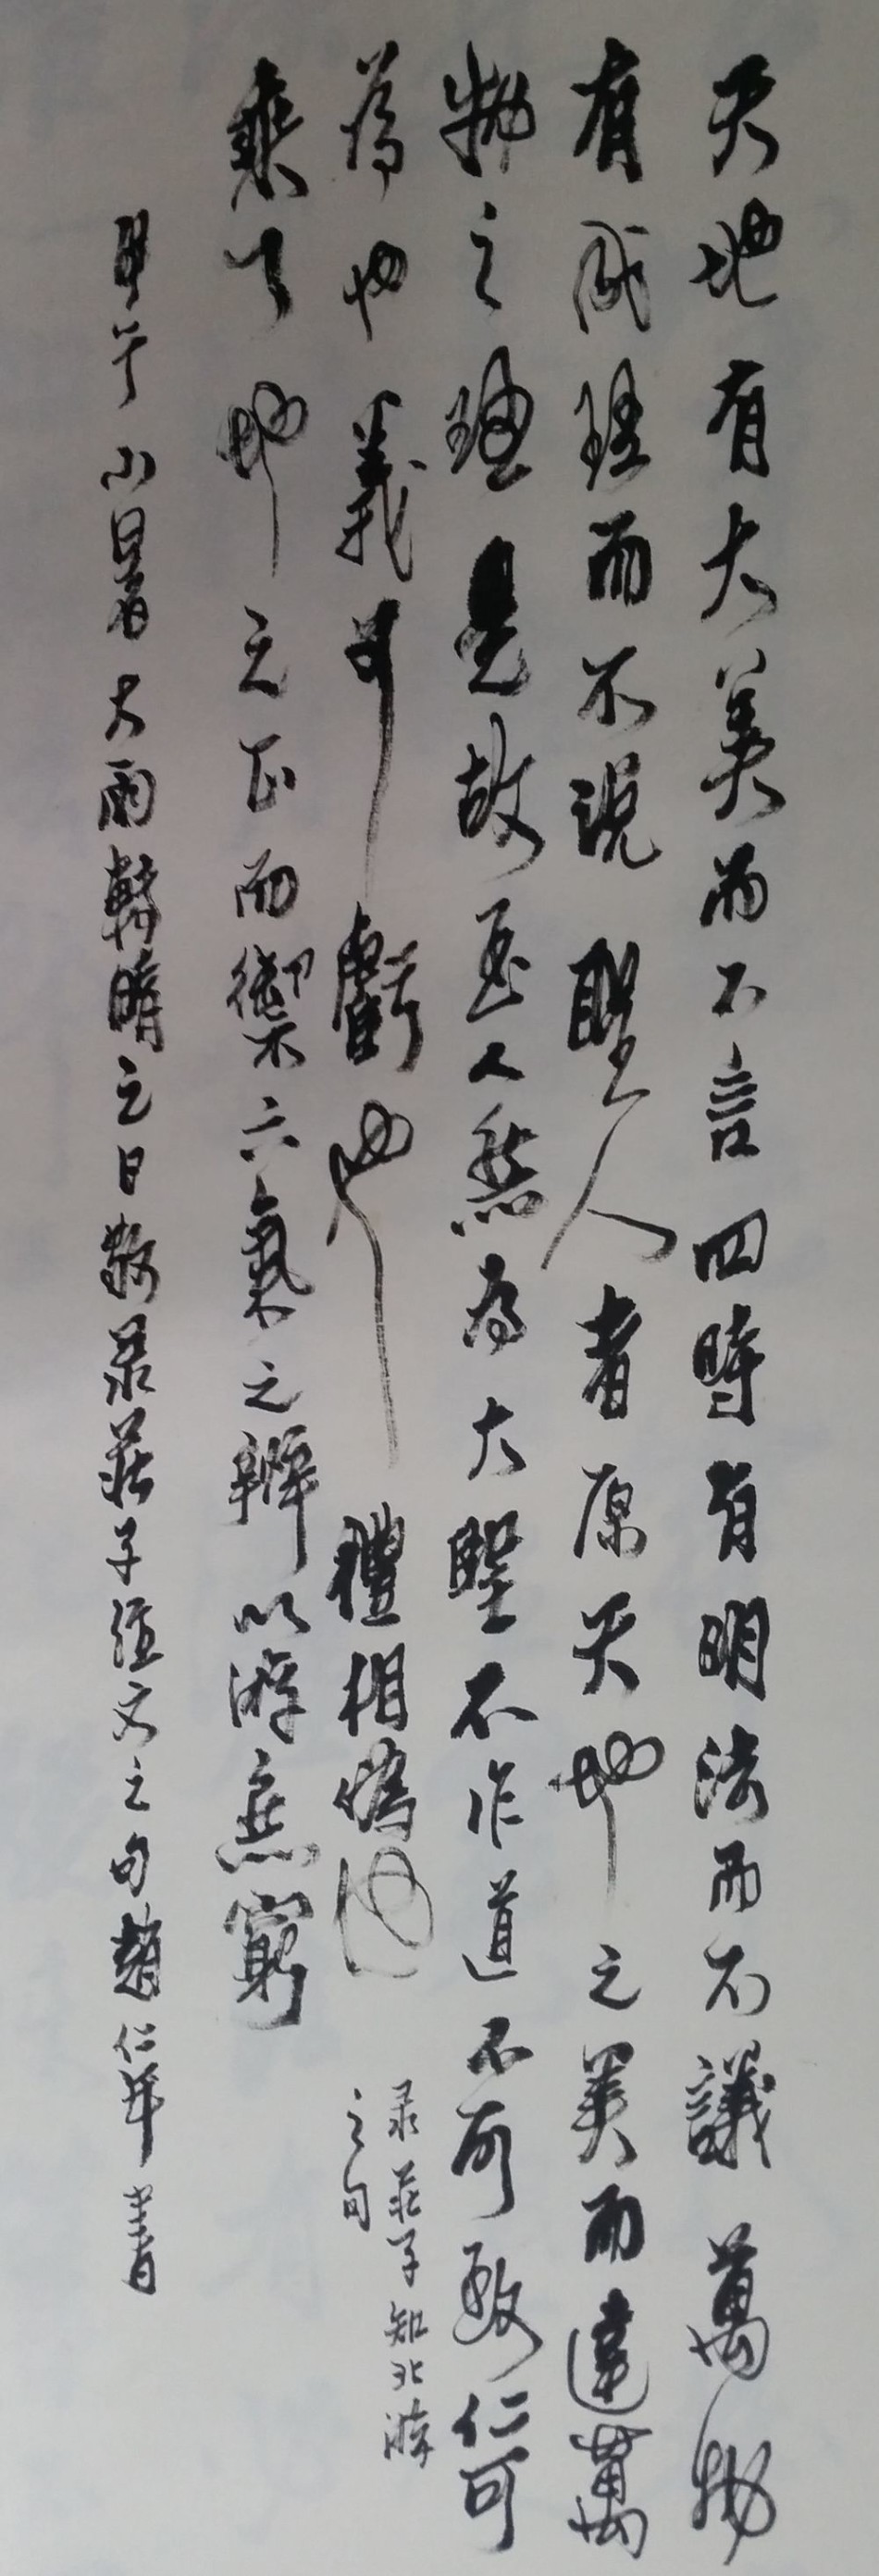 天地有大美而不言四時有明法而不議萬物
有成理而不説聖人者原天地之美而達萬
物之理是故至人無為大聖不作道不可致仁可
為也義可虧也禮相偽也
录莊子知北游
之句
乘天地之正而御六氣之辨以游無窮
甲午小暑大雨轉晴之日敬录莊子經文之句趙仁年書